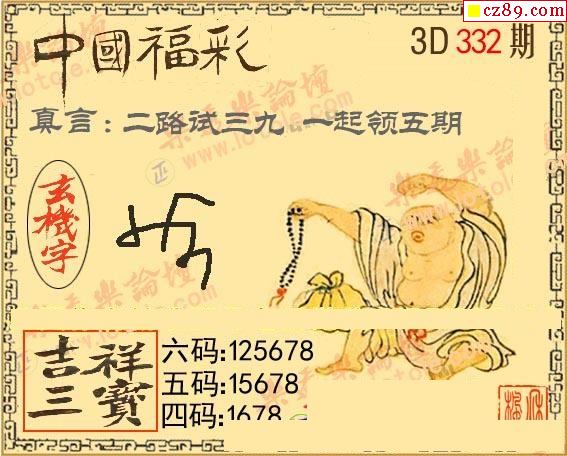 cz89.com
中國福彩
3D 332 期
真言：二路试三九 一起领五期
玄機字
吉祥三寶
六码:125678
五码:15678
四码:1678